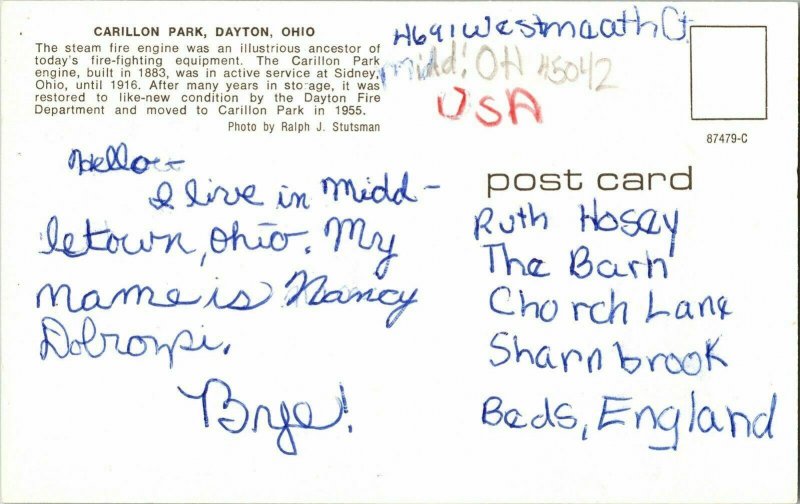 CARILLON PARK, DAYTON, OHIO
The steam fire engine was an illustrious ancestor of
today's fire-fighting equipment. The Carillon Park
engine, built in 1883, was in active service at Sidney,
Ohio, until 1916. After many years in storage, it was
restored to like-new condition by the Dayton Fire
Department and moved to Carillon Park in 1955.
Photo by Ralph J. Stutsman
4691 Westmeath Ct
Midd! OH 45042
USA
87479-C
post card
Hello
I live in Midd-
letown, Ohio. My
name is Nancy
Bye!
Ruth Hosey
The Barn
Church Lane
Sharnbrook
Beds, England